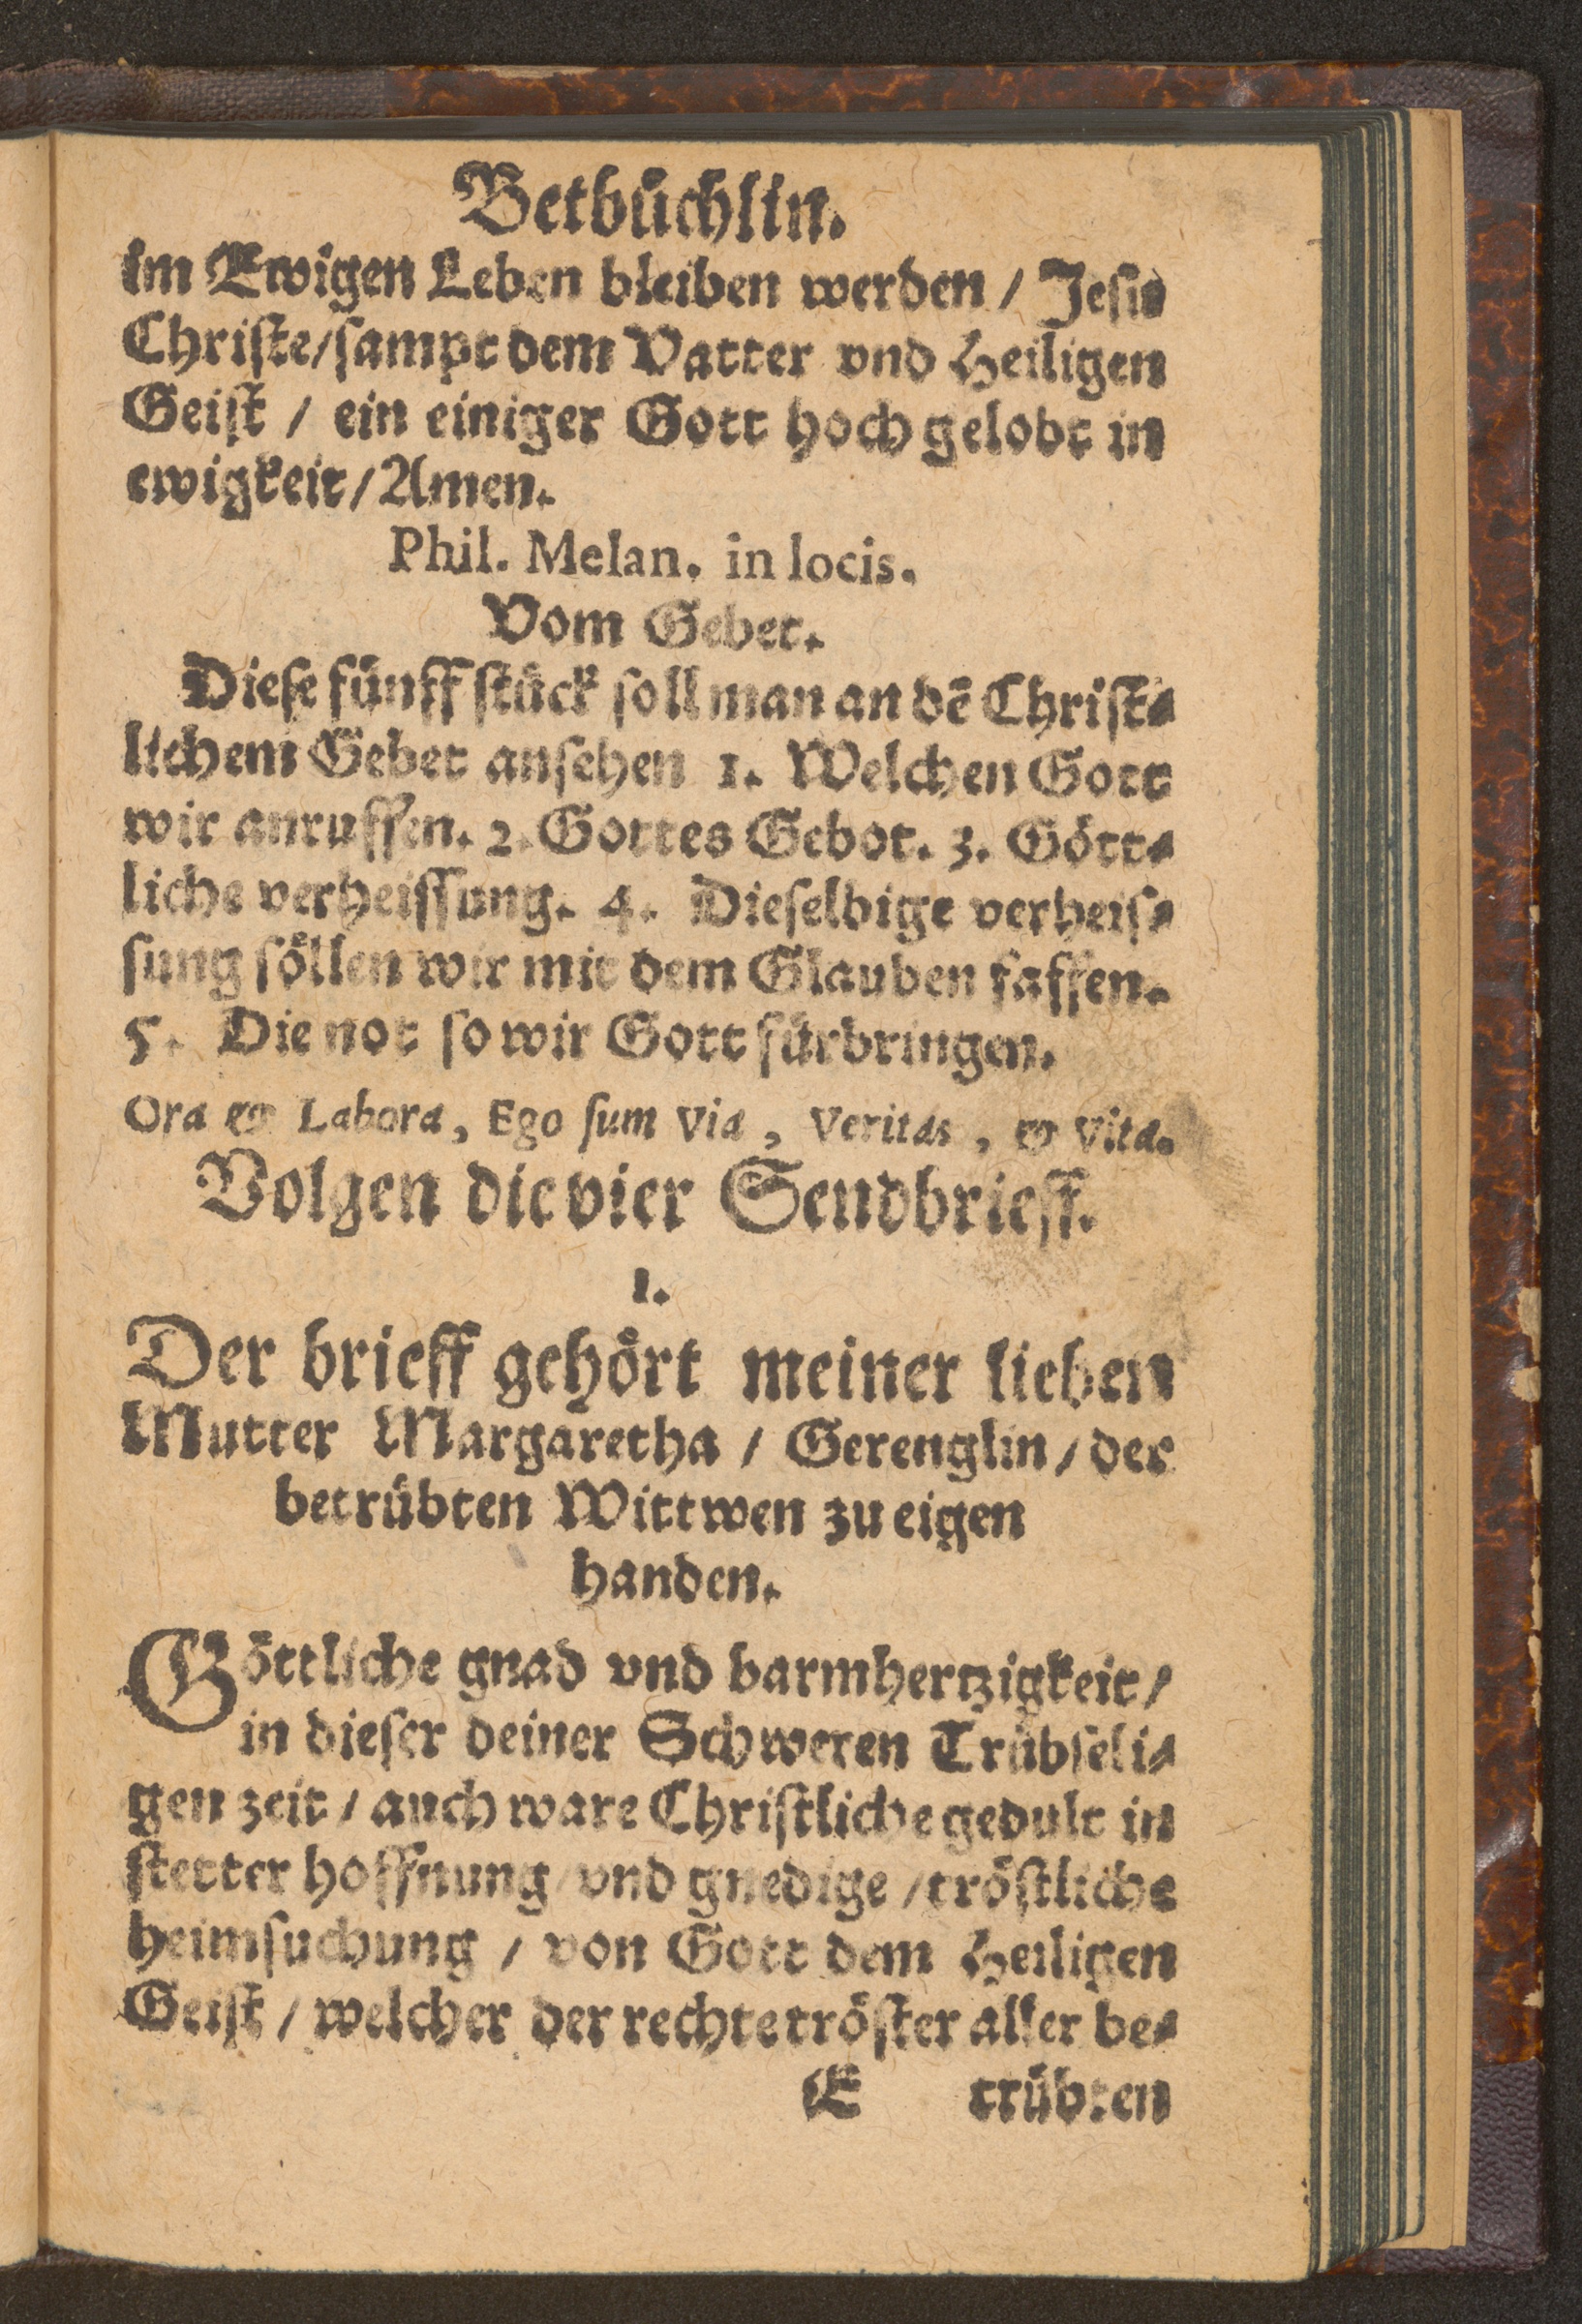 Betbuͤchlin.
im Ewigen Leben bleiben werden / Jesu
Christe/sampt dem Vatter vnd Heiligen
Geist / ein einiger Gott hoch gelobt in
ewigkeit/Amen.
Phil. Melan. in locis.
Vom Gebet.
Diese fuͤnff stuͤck soll man an dē Christ⸗
lichem Gebet ansehen 1. Welchen Gott
wir anruffen. 2. Gottes Gebot. 3. Goͤtt⸗
liche verheissung. 4. Dieselbige verheis⸗
sung soͤllen wir mit dem Glauben fassen.
5. Die not so wir Gott fuͤrbringen.
Ora & Labora, Ego sum Via, Veritas, & Vita.
Volgen die vier Sendbrieff.
1.
Der brieff gehoͤrt meiner lieben
Mutter Margaretha / Gerenglin / der
betruͤbten Wittwen zu eigen
handen.
Goͤttliche gnad vnd barmhertzigkeit/
in dieser deiner Schweren Truͤbseli⸗
gen zeit / auch ware Christliche gedult in
stetter hoffnung vnd gnedige / troͤstliche
heimsuchung / von Gott dem Heiligen
Geist / welcher der rechte troͤster aller be⸗
E truͤbten